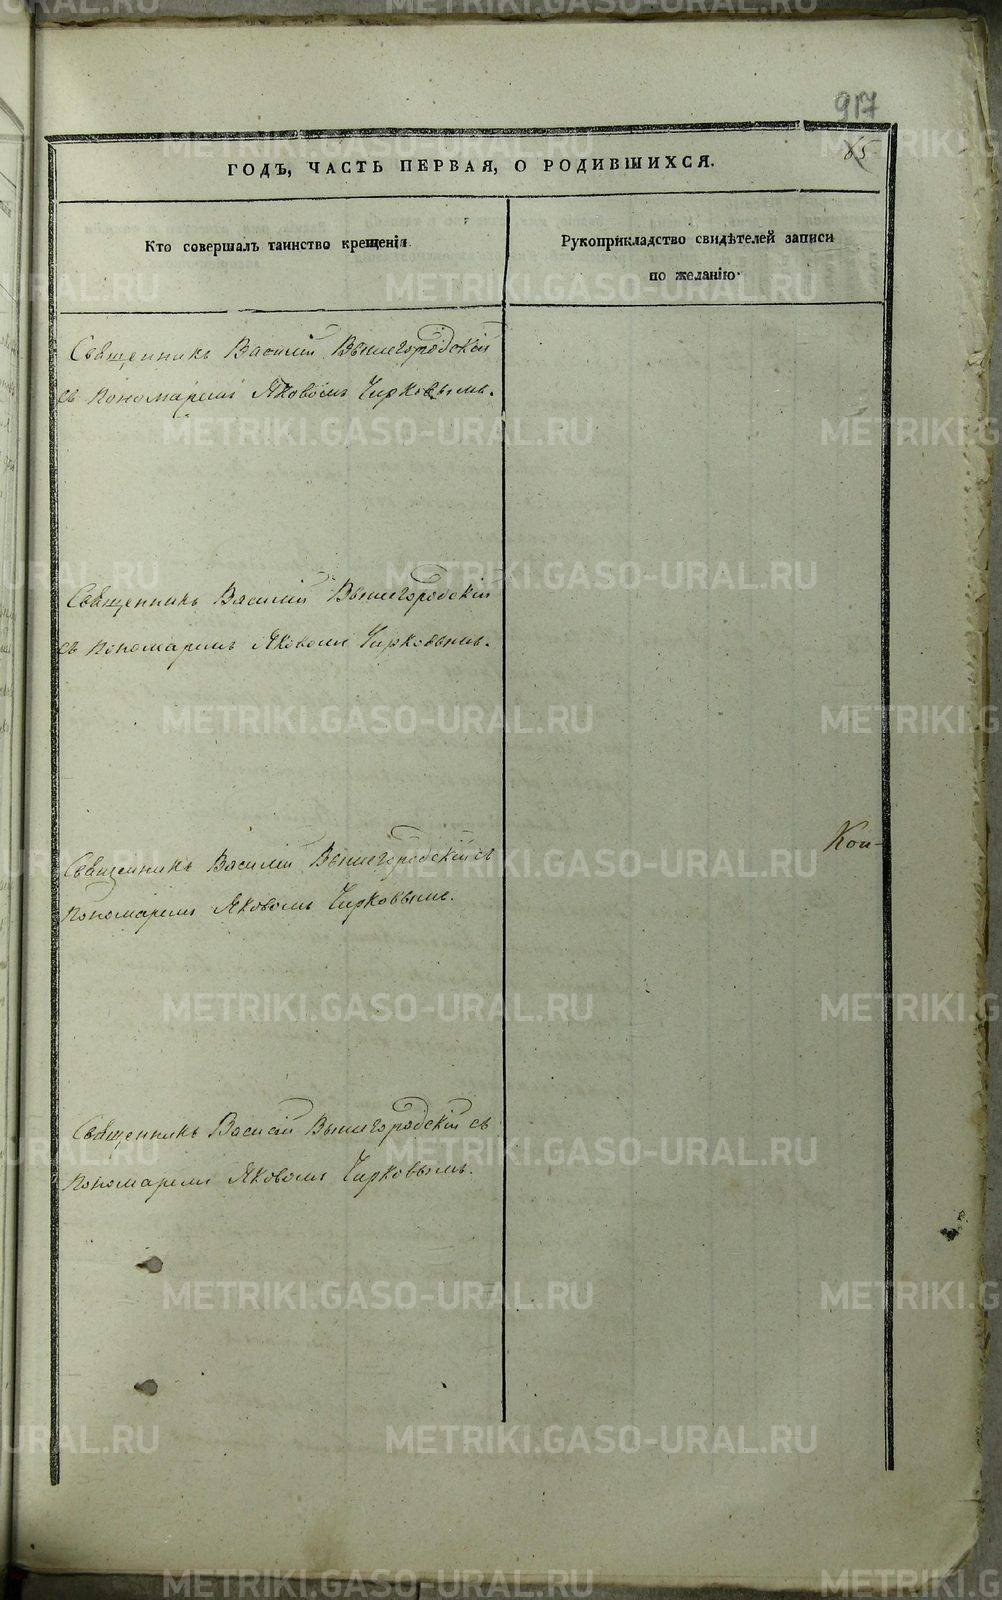 917
85
ГОДЪ, ЧАСТЬ ПЕРВАЯ, О РОДИВШИХСЯ.
Кто совершалъ таинство крещенія.
Рукоприкладство свидѣтелей записи
по желанію.
Священникъ Василій Вышегородскій
съ пономаремъ Яковомъ Чирковымъ.
Священникъ Василій Вышегородскій
съ пономаремъ Яковомъ Чирковымъ.
Священникъ Василій Вышегородскій съ
пономаремъ Яковомъ Чирковымъ.
Кон-
Священникъ Василій Вышегородскій съ
пономаремъ Яковомъ Чирковымъ.
METRIKI.GASO-URAL.RU